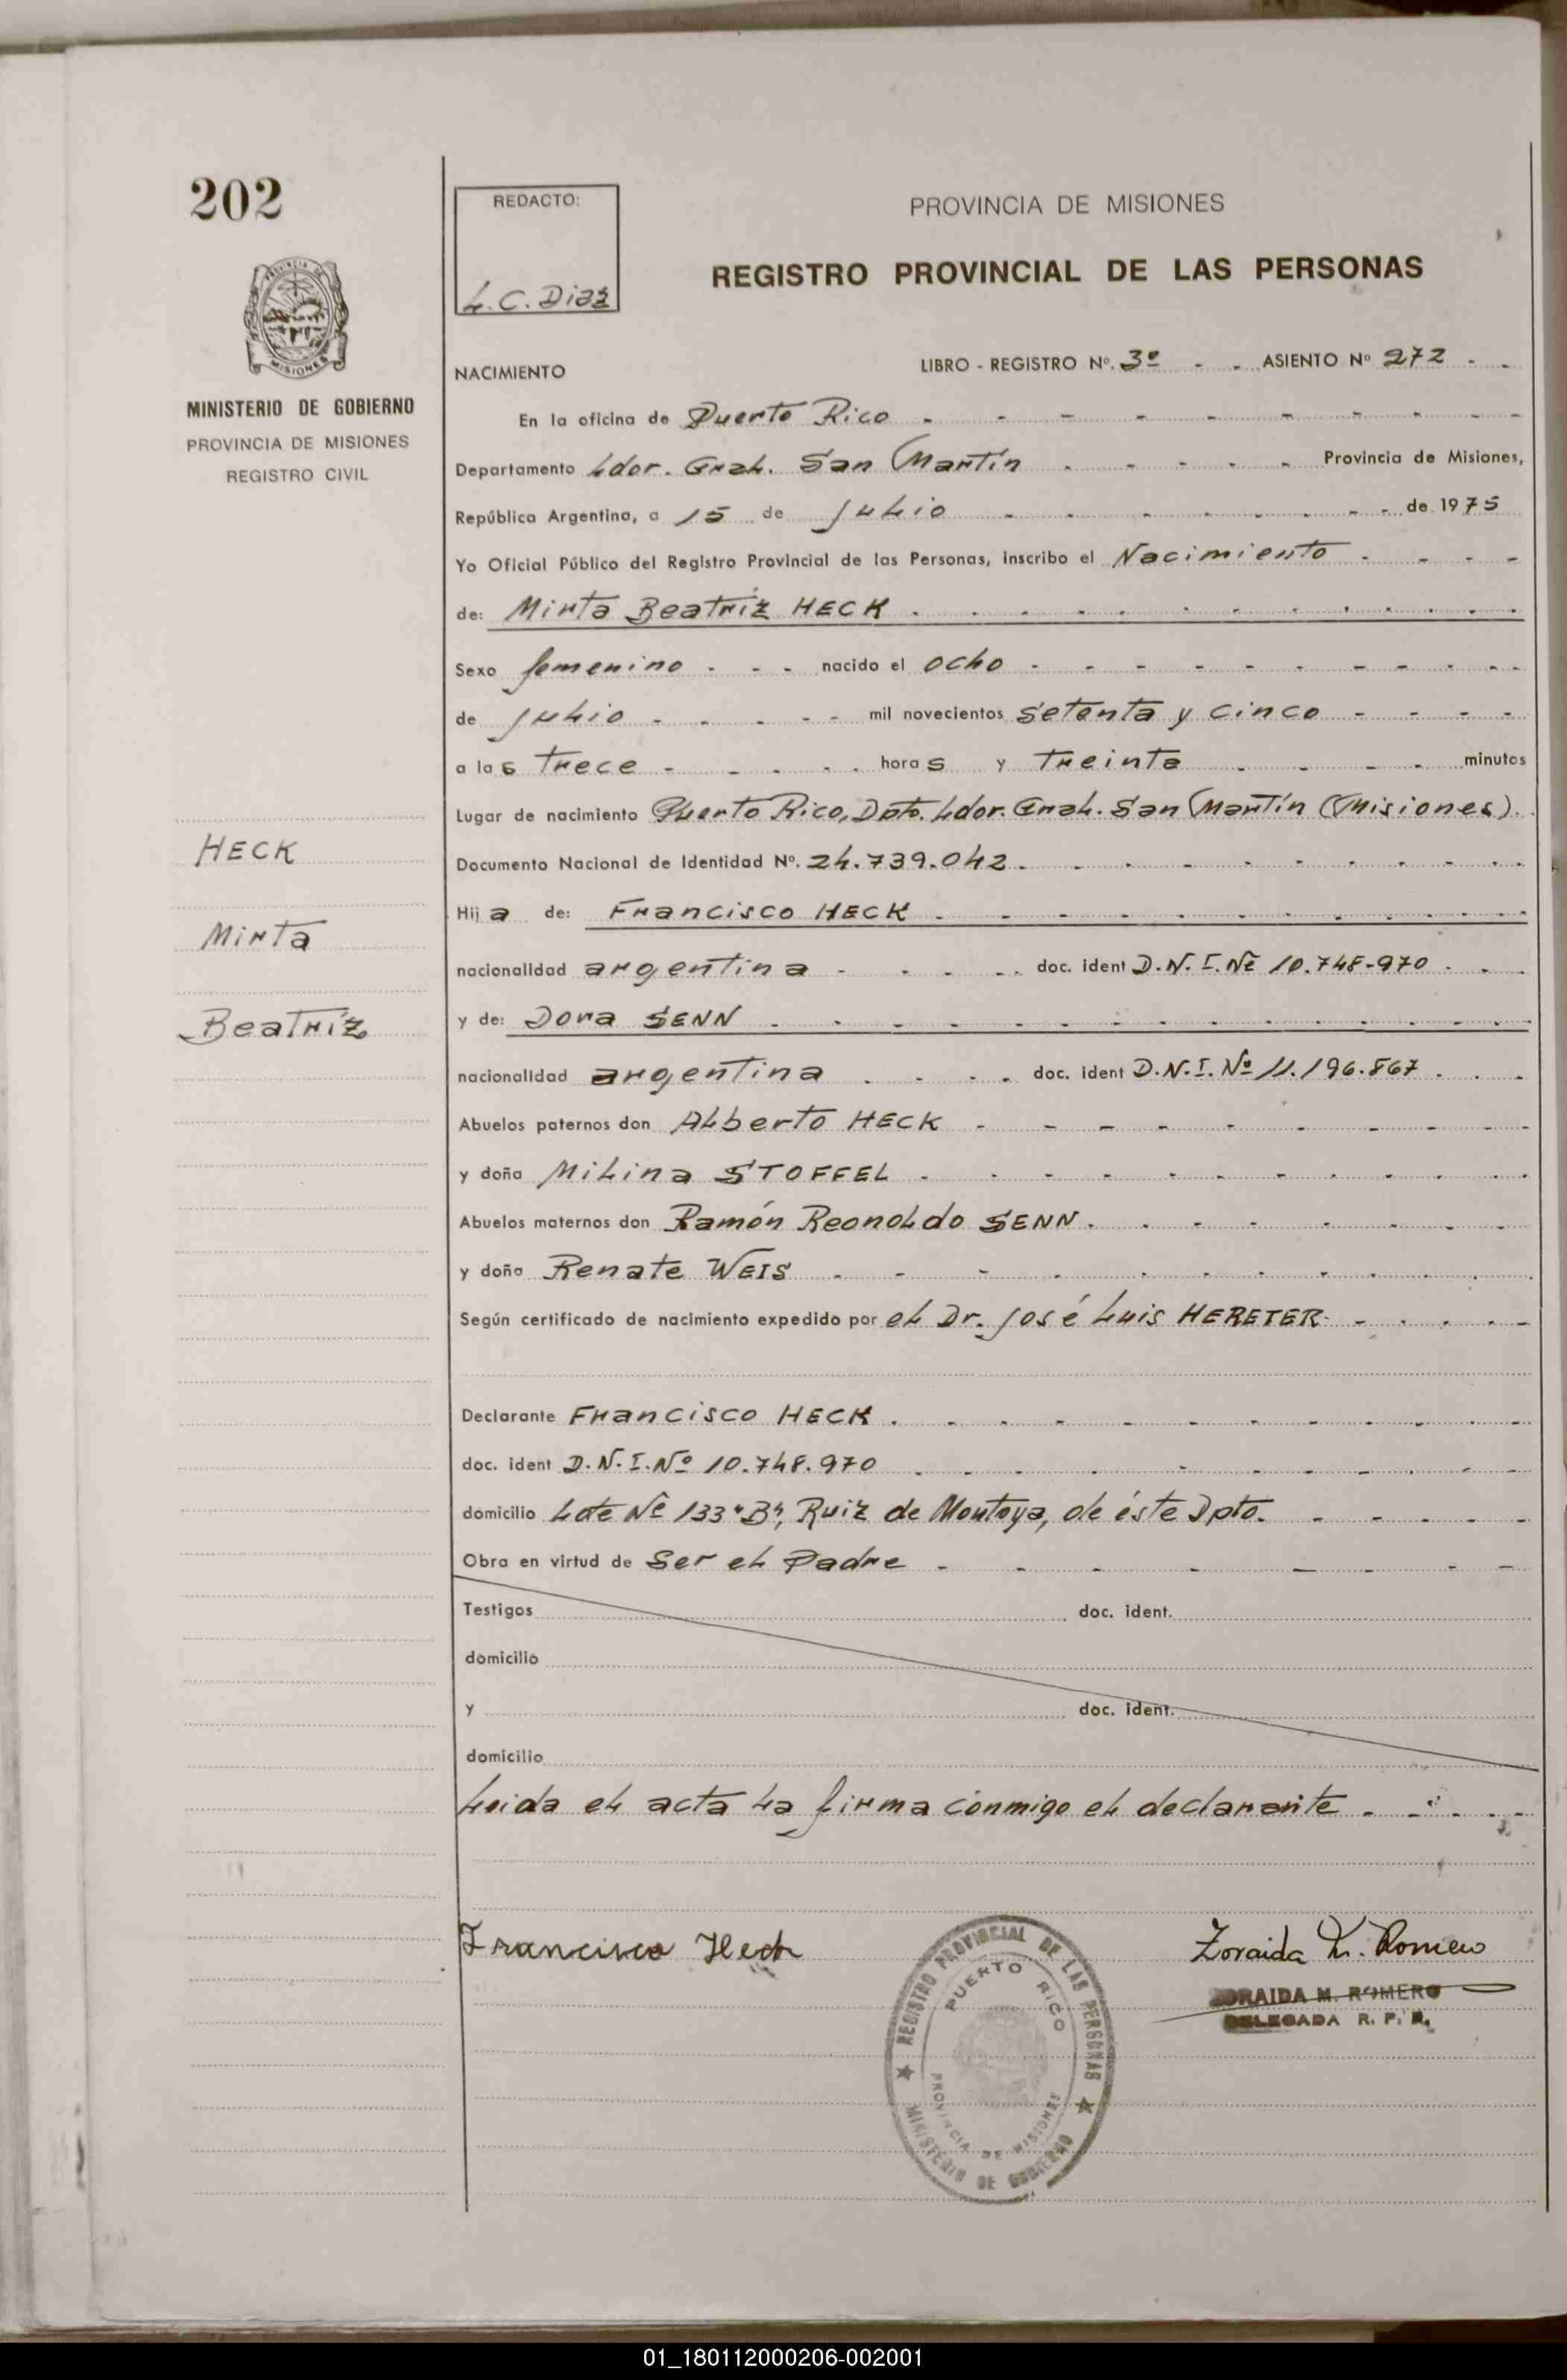 202
REDACTO:
L.C. Diaz
PROVINCIA DE MISIONES
REGISTRO PROVINCIAL DE LAS PERSONAS
PROVINCIA DE
MISIONES
MINISTERIO DE GOBIERNO
PROVINCIA DE MISIONES
REGISTRO CIVIL
NACIMIENTO LIBRO - REGISTRO Nº. 3º - - ASIENTO Nº 272 - -
En la oficina de Puerto Rico
Departamento Ldor. Gral. San Martín Provincia de Misiones,
República Argentina, a 15 de Julio de 1975
Yo Oficial Público del Registro Provincial de las Personas, inscribo el Nacimiento
de: Mirta Beatríz HECK
Sexo femenino nacido el ocho
de Julio mil novecientos setenta y cinco
a las trece horas y treinta minutos
Lugar de nacimiento Puerto Rico, Dpto. Ldor. Gral. San Martín (Misiones).
Documento Nacional de Identidad Nº. 24.739.042
Hija de: Francisco HECK
nacionalidad argentina doc. ident D.N.I.Nº 10.748.970
y de: Dora SENN
nacionalidad argentina doc. ident D.N.I. Nº 11.196.867
Abuelos paternos don Alberto HECK
y doña Milina STOFFEL
Abuelos maternos don Ramón Reonoldo SENN
y doña Renate WEIS
Según certificado de nacimiento expedido por el Dr. José Luis HERETER
Declarante Francisco HECK
doc. ident D.N.I.Nº 10.748.970
domicilio Lote Nº 133 "B", Ruiz de Montoya, de éste Dpto.
Obra en virtud de Ser el Padre
Testigos doc. ident.
domicilio
y doc. ident.
domicilio
Leida el acta la firma conmigo el declarante
HECK
Mirta
Beatríz
Francisco Heck
Zoraida M. Romero
ZORAIDA M. ROMERO
DELEGADA R. P. P.
REGISTRO PROVINCIAL DE LAS PERSONAS
PUERTO RICO
PROVINCIA DE MISIONES
MINISTERIO DE GOBIERNO
01_180112000206-002001